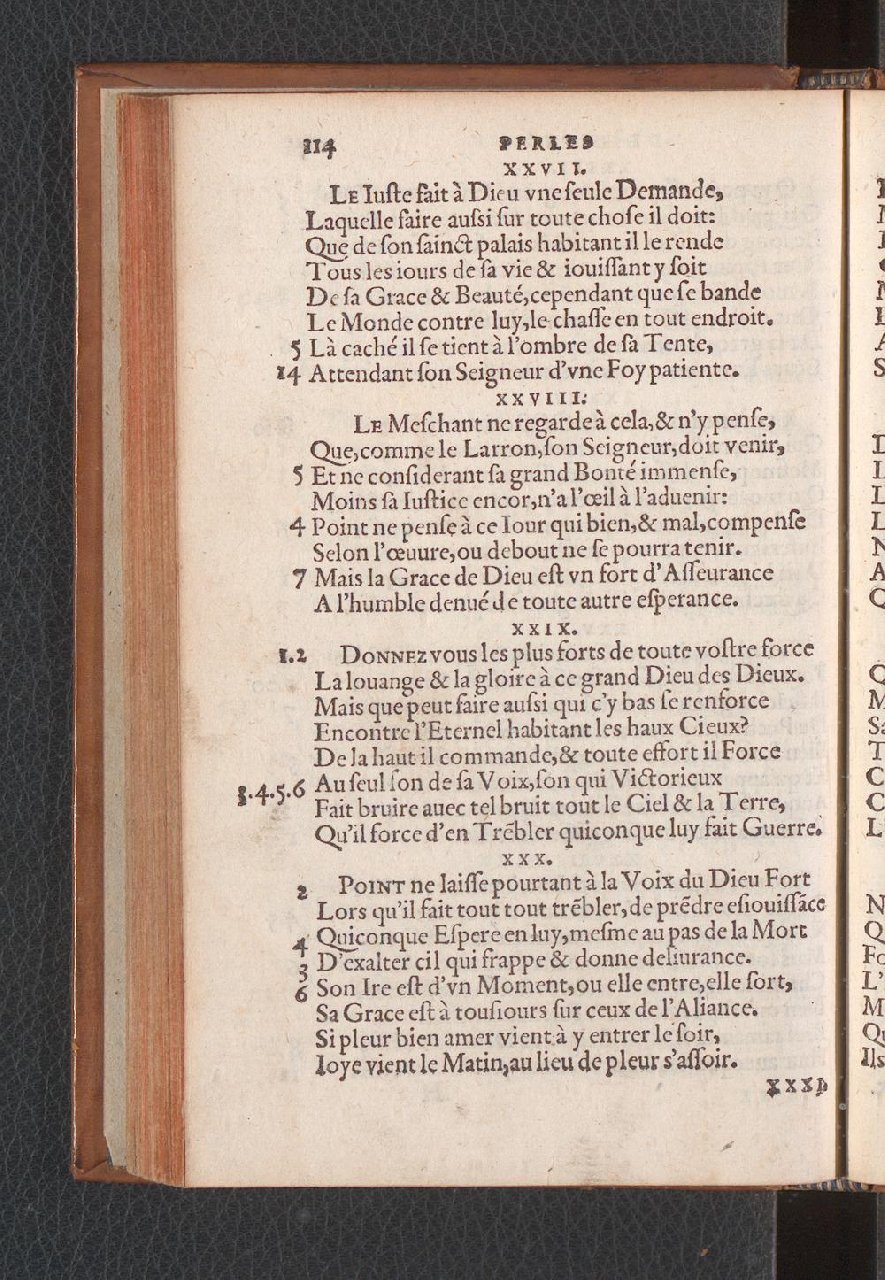 114 PERLES
XXVII.
LE Iuſte fait à Dieu vne ſeule Demande,
Laquelle faire auſsi ſur toute choſe il doit:
Que de ſon ſainct palais habitant il le rende
Tous les iours de ſa vie & iouiſſant y ſoit
De ſa Grace & Beauté, cependant que ſe bande
Le Monde contre luy, le chaſſe en tout endroit.
5 Là caché il ſe tient à l'ombre de ſa Tente,
14 Attendant ſon Seigneur d'vne Foy patiente.
XXVIII.
LE Meſchant ne regarde à cela, & n'y penſe,
Que, comme le Larron, ſon Seigneur, doit venir,
5 Et ne conſiderant ſa grand Bonté immenſe,
Moins ſa Iuſtice encor, n'a l'œil à l'aduenir:
4 Point ne penſe à ce Iour qui bien, & mal, compenſe
Selon l'œuure, ou debout ne ſe pourra tenir.
7 Mais la Grace de Dieu eſt vn fort d'Aſſeurance
A l'humble denué de toute autre eſperance.
XXIX.
1.2 DONNEZ vous les plus forts de toute voſtre force
La louange & la gloire à ce grand Dieu des Dieux.
Mais que peut faire auſsi qui c'y bas ſe renforce
Encontre l'Eternel habitant les haux Cieux?
De la haut il commande, & toute effort il Force
Au ſeul ſon de ſa Voix, ſon qui Victorieux
3.4.5.6 Fait bruire auec tel bruit tout le Ciel & la Terre,
Qu'il force d'en Trēbler quiconque luy fait Guerre.
XXX.
2 POINT ne laiſſe pourtant à la Voix du Dieu Fort
Lors qu'il fait tout tout trēbler, de prēdre eſiouiſſāce
4 Quiconque Eſpere en luy, meſme au pas de la Mort
3 D'exalter cil qui frappe & donne deliurance.
6 Son Ire eſt d'vn Moment, ou elle entre, elle ſort,
Sa Grace eſt à touſiours ſur ceux de l'Aliance.
Si pleur bien amer vient à y entrer le ſoir,
Ioye vient le Matin, au lieu de pleur s'aſſoir.
XXXI.